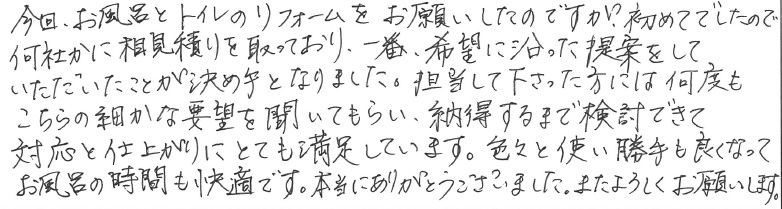 今回、お風呂とトイレのリフォームをお願いしたのですが?初めてでしたので
何社かに相見積りを取っており、一番、希望に沿った提案をして
いただいたことが決め手となりました。担当して下さった方には何度も
こちらの細かな要望を聞いてもらい、納得するまで検討できて
対応と仕上がりにとても満足しています。色々と使い勝手も良くなって
お風呂の時間も快適です。本当にありがとうございました。またよろしくお願いします。